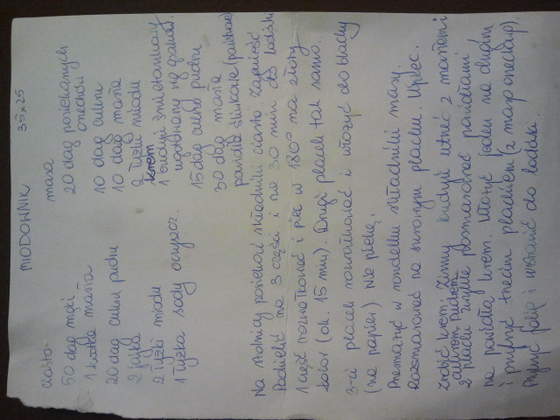 MIODOWNIK 35x25
ciasto-
50 dag mąki
1 kostka masła
20 dag cukru pudru
2 jajka
2 łyżki miodu
1 łyżka sody oczyszcz.
masa
20 dag posiekanych
orzechów
10 dag cukru
10 dag masła
2 łyżki miodu
krem
1 budyń śmietankowy
ugotowany wg przepisu
15 dag cukru pudru
30 dag masła
powidła śliwkowe
Na stolnicy posiekać składniki ciasta. Zagnieść
Podzielić na 3 części i na 30 min do lodówki
1 część rozwałkować i piec w 180° na złoty
kolor (ok. 15 min). Drugi placek tak samo.
3-ci placek rozwałkować i włożyć do blachy
(na papier) Nie piekę.
Przesmażyć w rondelku składniki masy.
Rozsmarować na surowym placku. Upiec.
Zrobić krem. Zimny budyń utrzeć z masłem i
cukrem pudrem.
2 placki zwykłe posmarować powidłami
na powidła krem. Ułożyć jeden na drugim
i przykryć trzecim plackiem (z masą orzechową).
Przykryć folią i wstawić do lodówki.